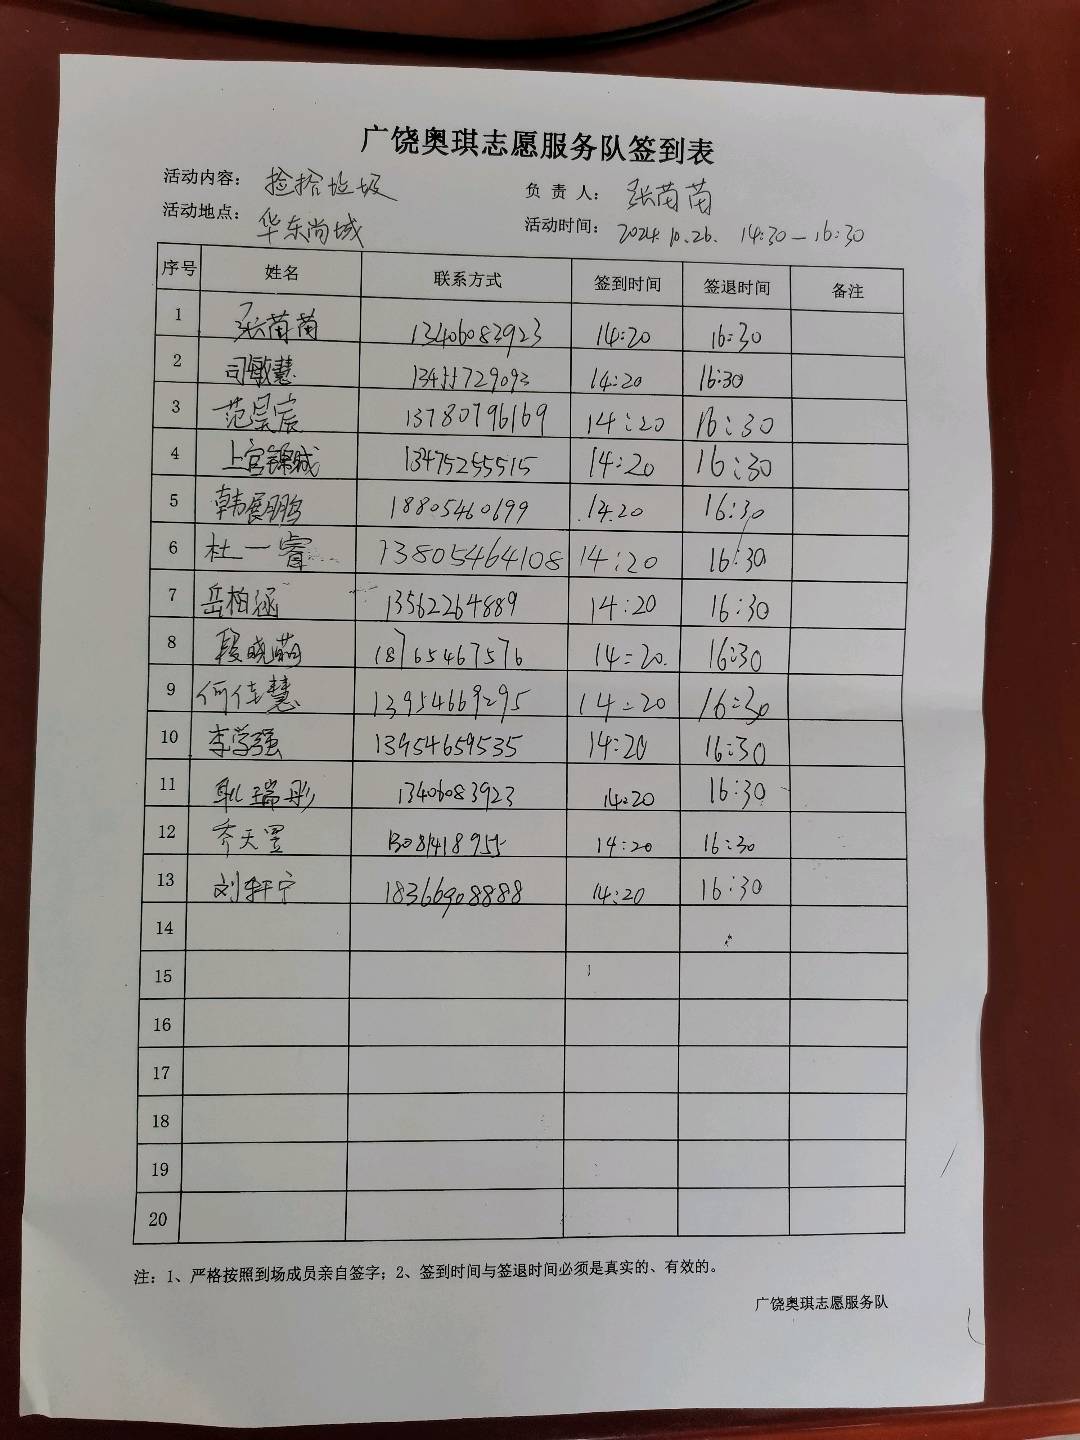 广饶奥琪志愿服务队签到表
活动内容： 捡拾垃圾 负 责 人： 张苗苗
活动地点： 华东尚城 活动时间： 2024.10.26. 14:30—16:30
序号 姓名 联系方式 签到时间 签退时间 备注
1 张苗苗 13406083923 14:20 16:30
2 司敏慧 13455729093 14:20 16:30
3 范昊宸 13780796169 14:20 16:30
4 上官锦城 13475255515 14:20 16:30
5 韩展鹏 18805460699 14.20 16:30
6 杜一睿 13805464108 14:20 16:30
7 岳柏涵 13562264889 14:20 16:30
8 段晓萌 18765467576 14:20. 16:30
9 何佳慧 13954669295 14:20 16:30
10 李学强 13954659535 14:20 16:30
11 耿瑞彤 13406083923 14:20 16:30
12 乔天罡 14:20 16:30
13 刘轩宁 18366908888 14:20 16:30
14
15
16
17
18
19
20
注：1、严格按照到场成员亲自签字；2、签到时间与签退时间必须是真实的、有效的。
广饶奥琪志愿服务队